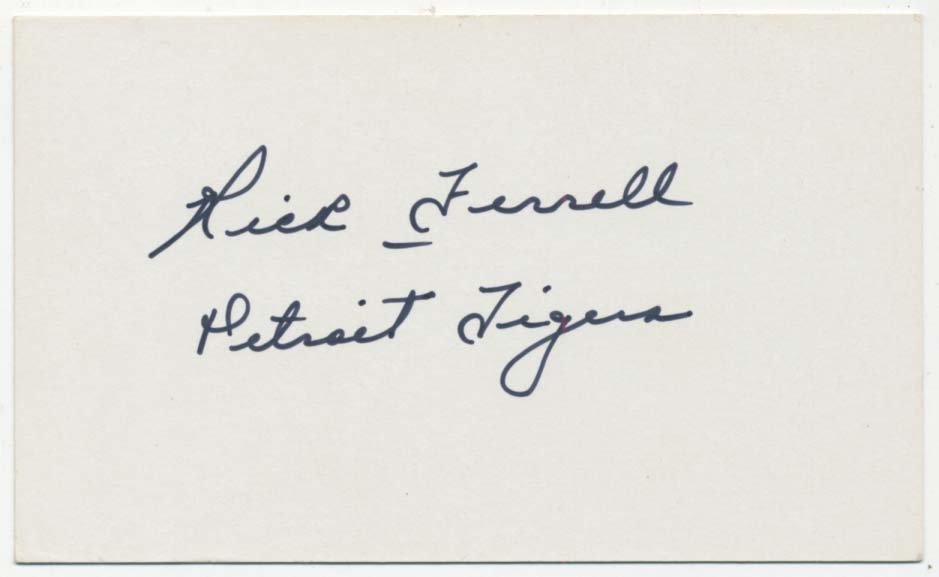 Rick Ferrell
Detroit Tigers